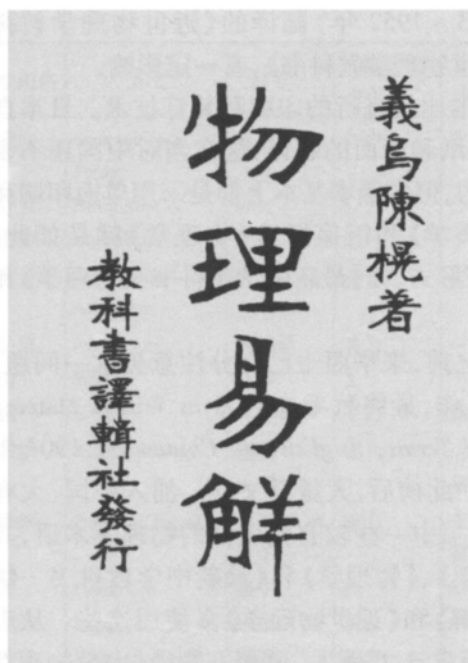 義烏陳榥著
物理易解
教科書譯輯社發行